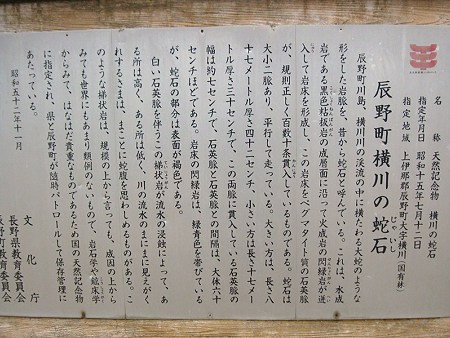 名称 天然記念物 横川の蛇石
指定年月日 昭和十五年七月十二日
指定地域 上伊那郡辰野町大字横川(国有林)
辰野町横川の蛇石
じゃいし
辰野町川島、横川川の渓流の中に横たわる大蛇のような
形をした岩脈を、昔から蛇石と呼んでいる。これは、水成
岩である黒色粘板岩の成層面に沿って火成岩の閃緑岩が迸
入して岩床を形成し、この岩床をペグマタイト質の石英脈
が、規則正しく百数十条貫入しているものである。蛇石は
大小二脈あり、平行して走っている。大きい方は、長さ八
十七メートル厚さ四十二センチ、小さい方は長さ十七メー
トル厚さ三十センチで、この両脈に貫入している石英脈の
幅は約七センチで、石英脈と石英脈との間隔は、大体六十
センチほどである。岩床の閃緑岩は、緑青色を帯びている
が、蛇石の部分は表面が褐色である。
白い石英脈を伴うこの梯状岩が流水の浸蝕によって、あ
る所は高く、ある所は低く、川の流水のまにまに見えがく
れするさまは、まことに蛇腹を思わしめるものがある。こ
のような梯状岩は、規模の上から言っても、成因の上から
みても世界にもあまり類例のないもので、岩石学や鉱床学
からみて、はなはだ貴重なものであるため国の天然記念物
に指定され、県と辰野町が随時パトロールして保存管理に
あたっている。
昭和五十二年十一月
文化庁
長野県教育委員会
辰野町教育委員会